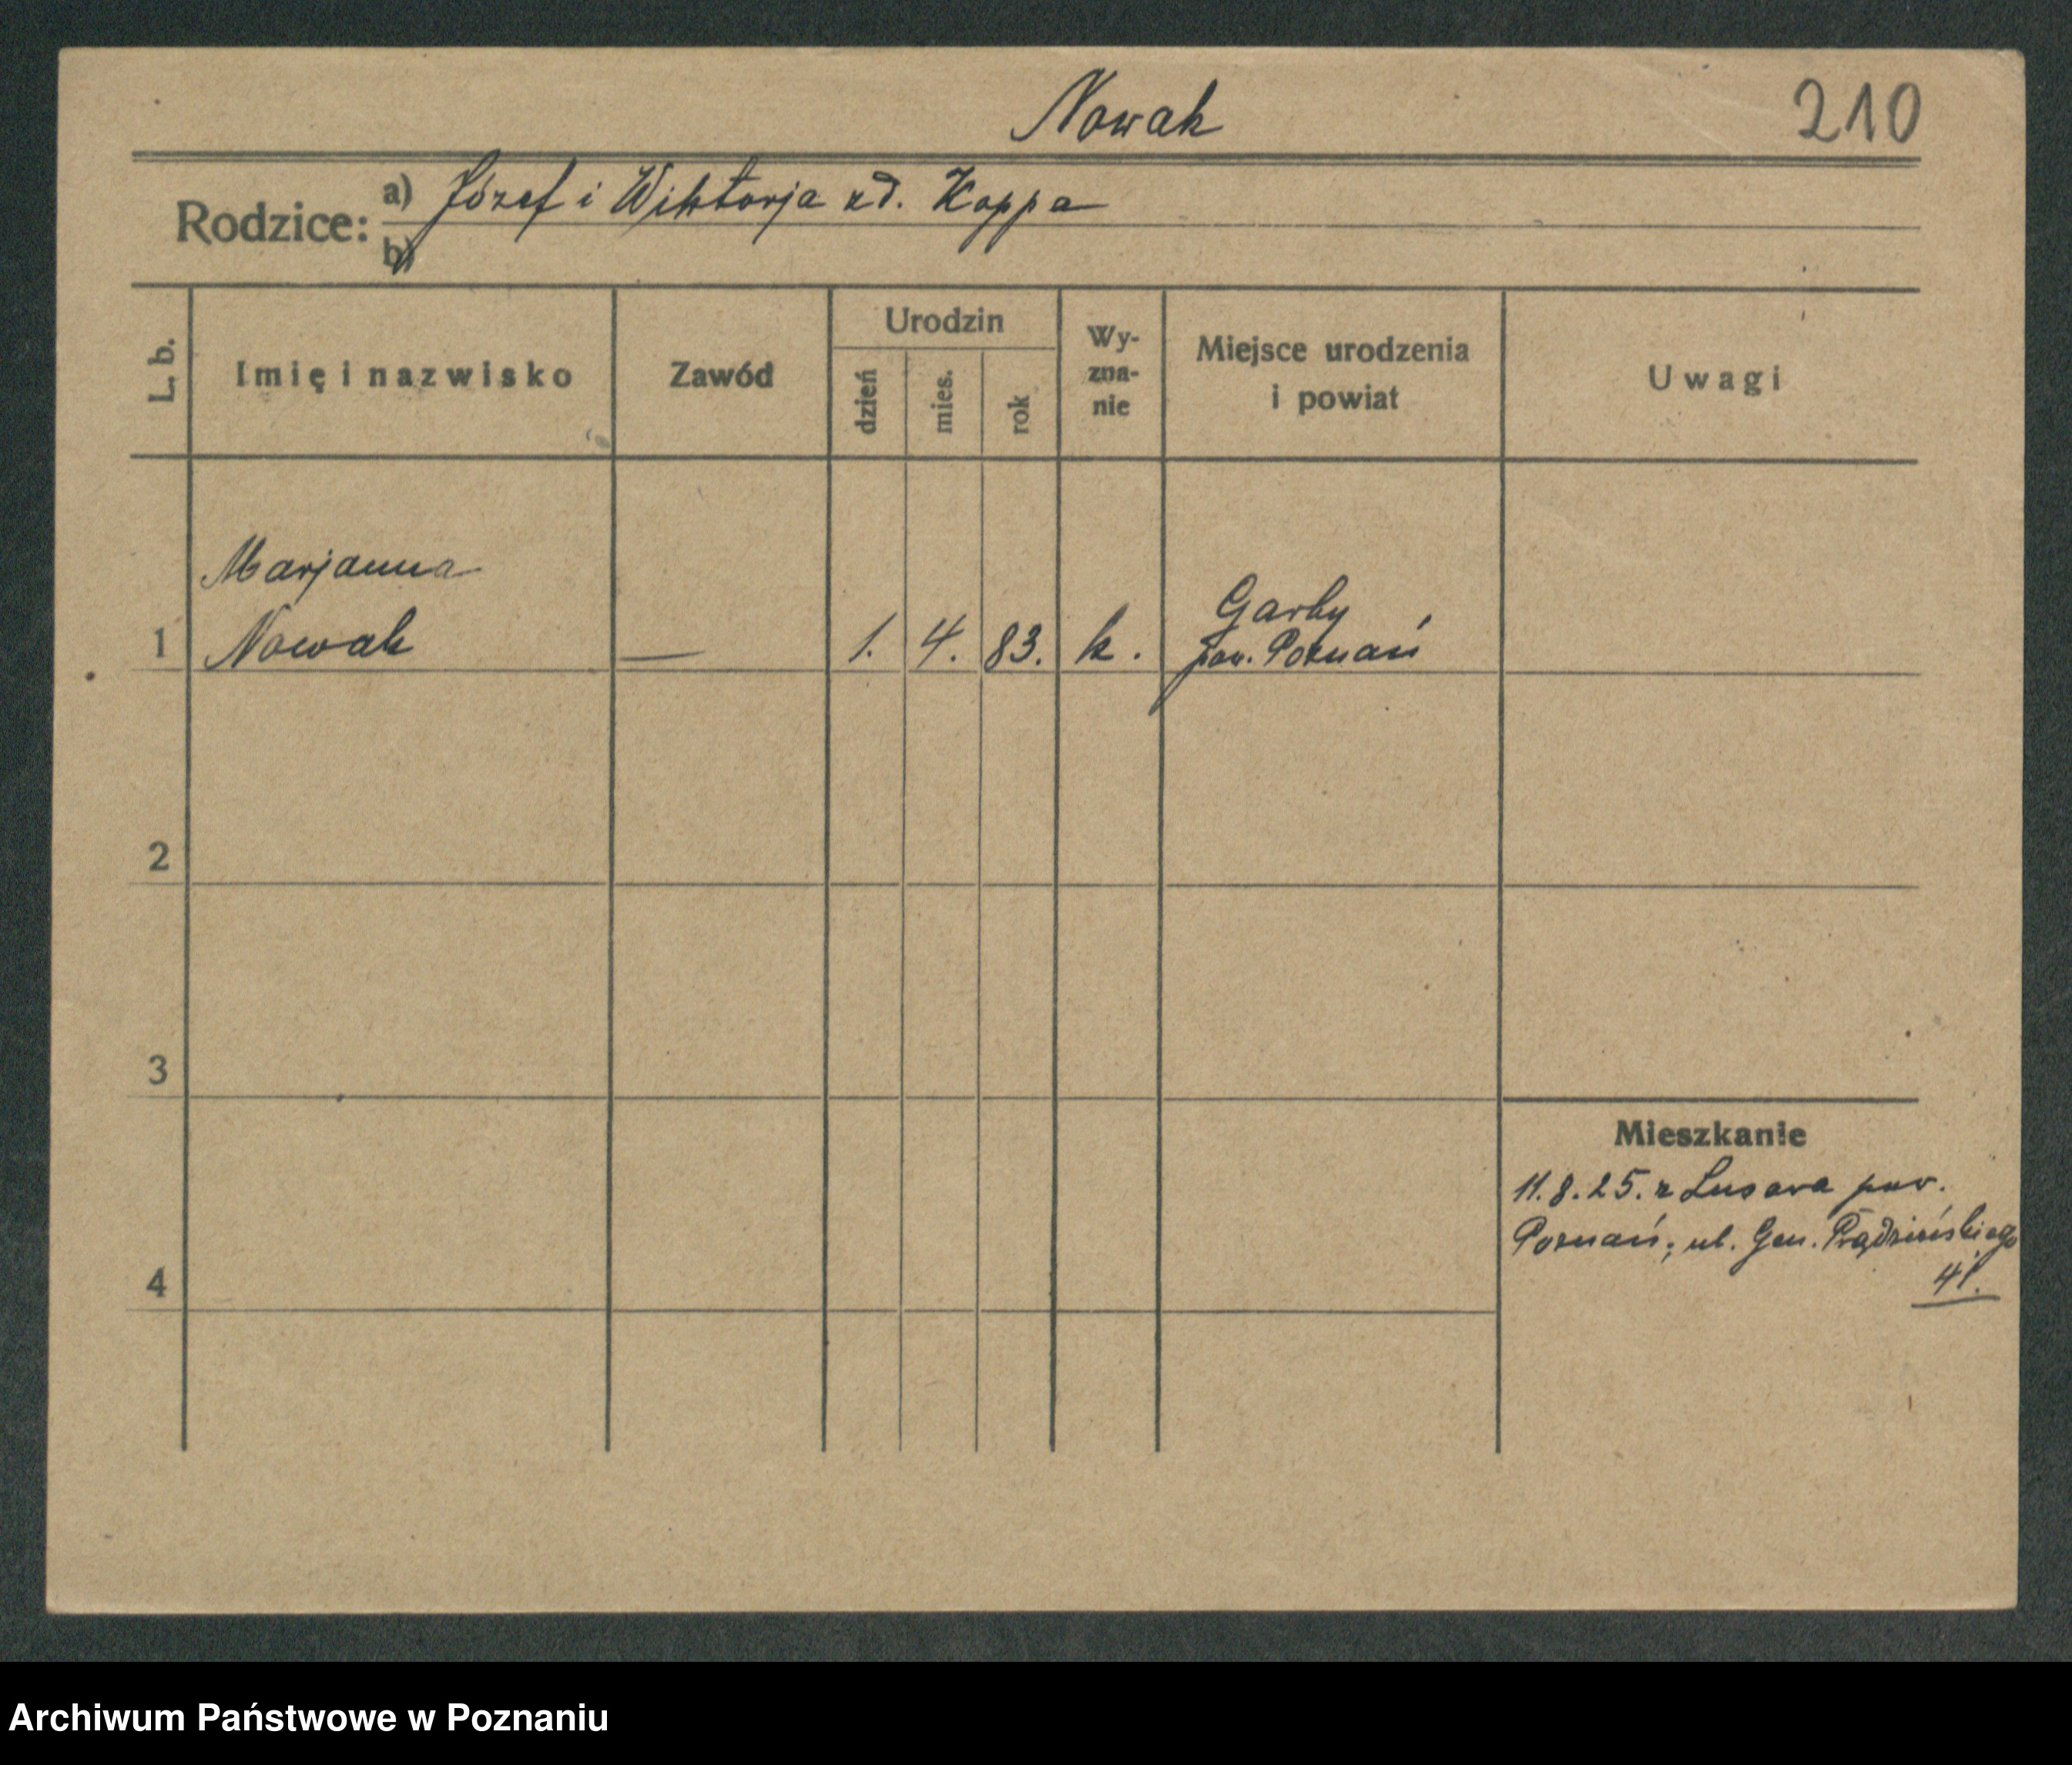 Nowak
210
Rodzice: a) Józef i Wiktorja zd. Koppa
b)
L. b.
Imię i nazwisko
Zawód
Urodzin
dzień
mies.
rok
Wy-
zna-
nie
Miejsce urodzenia
i powiat
Uwagi
Marjanna
1 Nowak — 1. 4. 83. k.
Garby
pow. Poznań
2
3
4
Mieszkanie
11.8.25. z Lusowa pow.
Poznań, ul. Gen. Prądzińskiego
41.
Archiwum Państwowe w Poznaniu